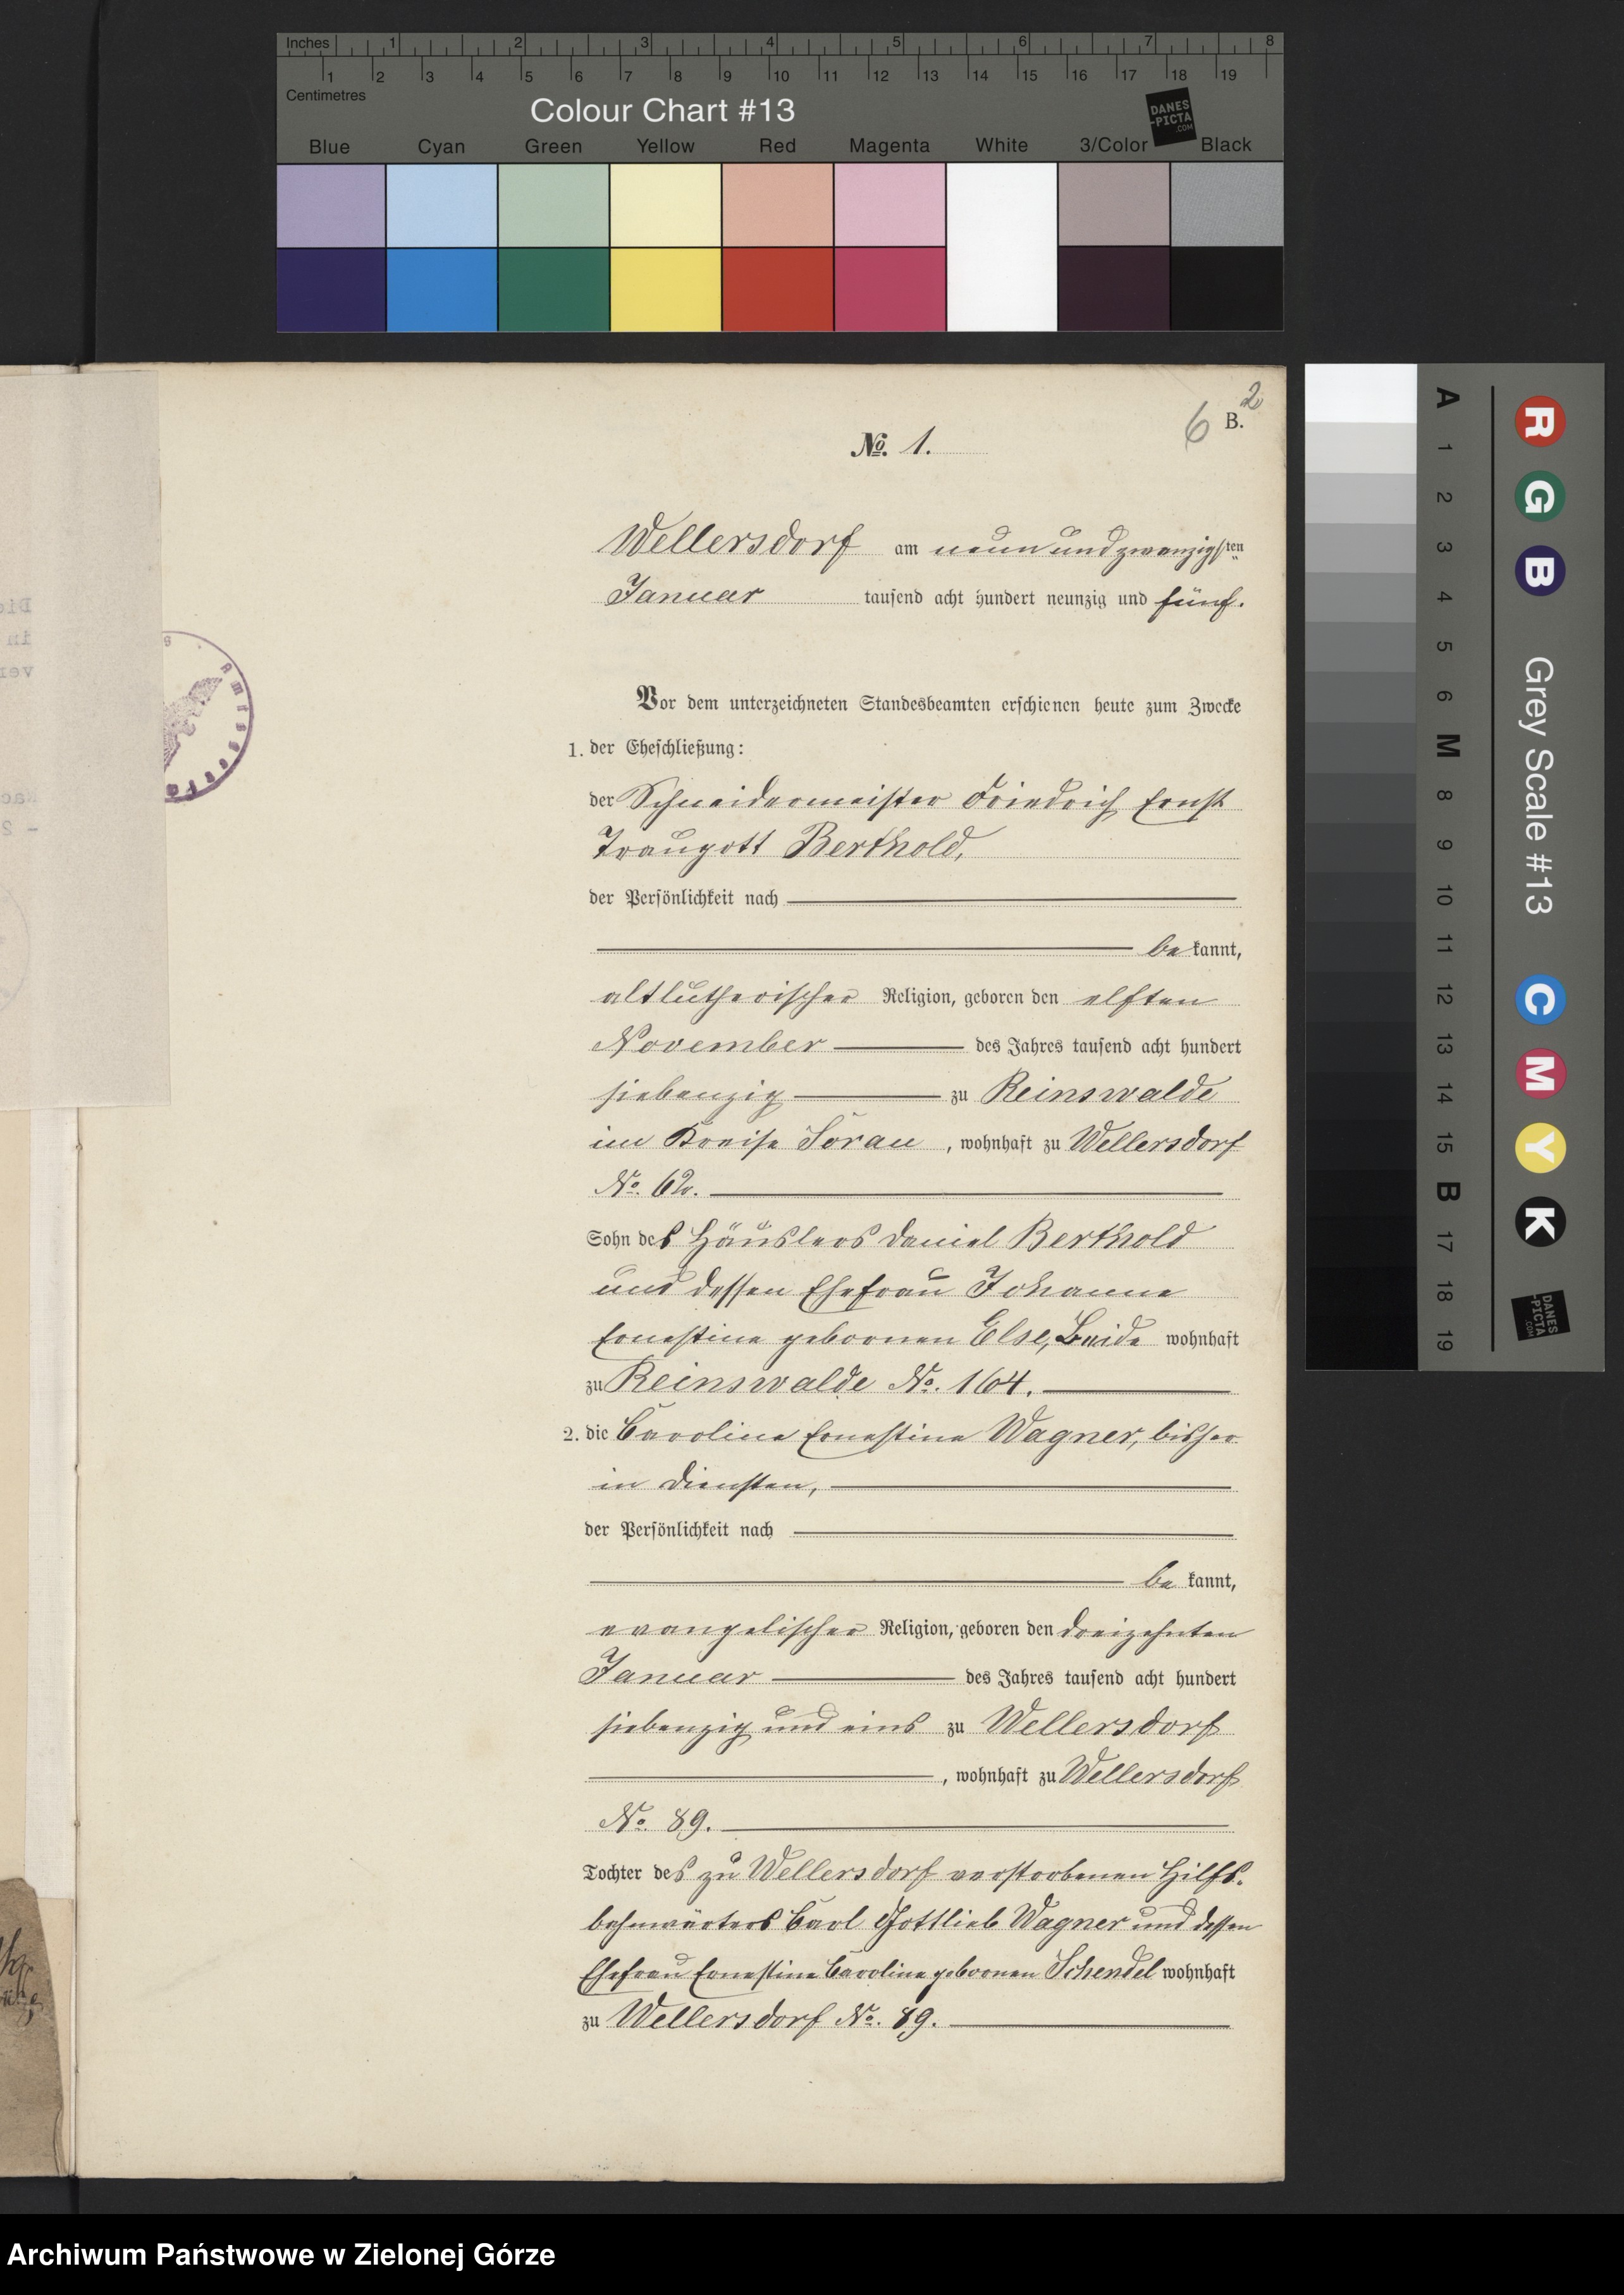 Inches 1 2 3 4 5 6 7 8
1 2 3 4 5 6 7 8 9 10 11 12 13 14 15 16 17 18 19
Centimetres
Colour Chart #13
DANES
-PICTA
.COM
Blue Cyan Green Yellow Red Magenta White 3/Color Black
6 2
B.
No. 1.
Wellersdorf am neun und zwanzigsten
Januar tausend acht hundert neunzig und fünf.
Vor dem unterzeichneten Standesbeamten erschienen heute zum Zwecke
1. der Eheschließung:
der Schneidermeister Friedrich Ernst
Traugott Berthold,
der Persönlichkeit nach
bekannt,
altlutherischer Religion, geboren den elften
November des Jahres tausend acht hundert
siebenzig zu Reinswalde
im Kreise Sorau, wohnhaft zu Wellersdorf
No. 62.
Sohn des Häuslers Daniel Berthold
und dessen Ehefrau Johanne
Ernestine geborenen Else, Beide wohnhaft
zu Reinswalde No. 164.
2. die Caroline Ernestine Wagner, bisher
in Diensten,
der Persönlichkeit nach
bekannt,
evangelischer Religion, geboren den dreizehnten
Januar des Jahres tausend acht hundert
siebenzig und eins zu Wellersdorf
, wohnhaft zu Wellersdorf
No. 89.
Tochter des zu Wellersdorf verstorbenen Hilfs-
bahnwärters Carl Gottlieb Wagner und dessen
Ehefrau Ernestine Caroline geborenen Schendel wohnhaft
zu Wellersdorf No. 89.
R G B Grey Scale #13 C M Y K
A 1 2 3 4 5 6 M 8 9 10 11 12 13 14 15 B 17 18 19
DANES
-PICTA
.COM
Archiwum Państwowe w Zielonej Górze